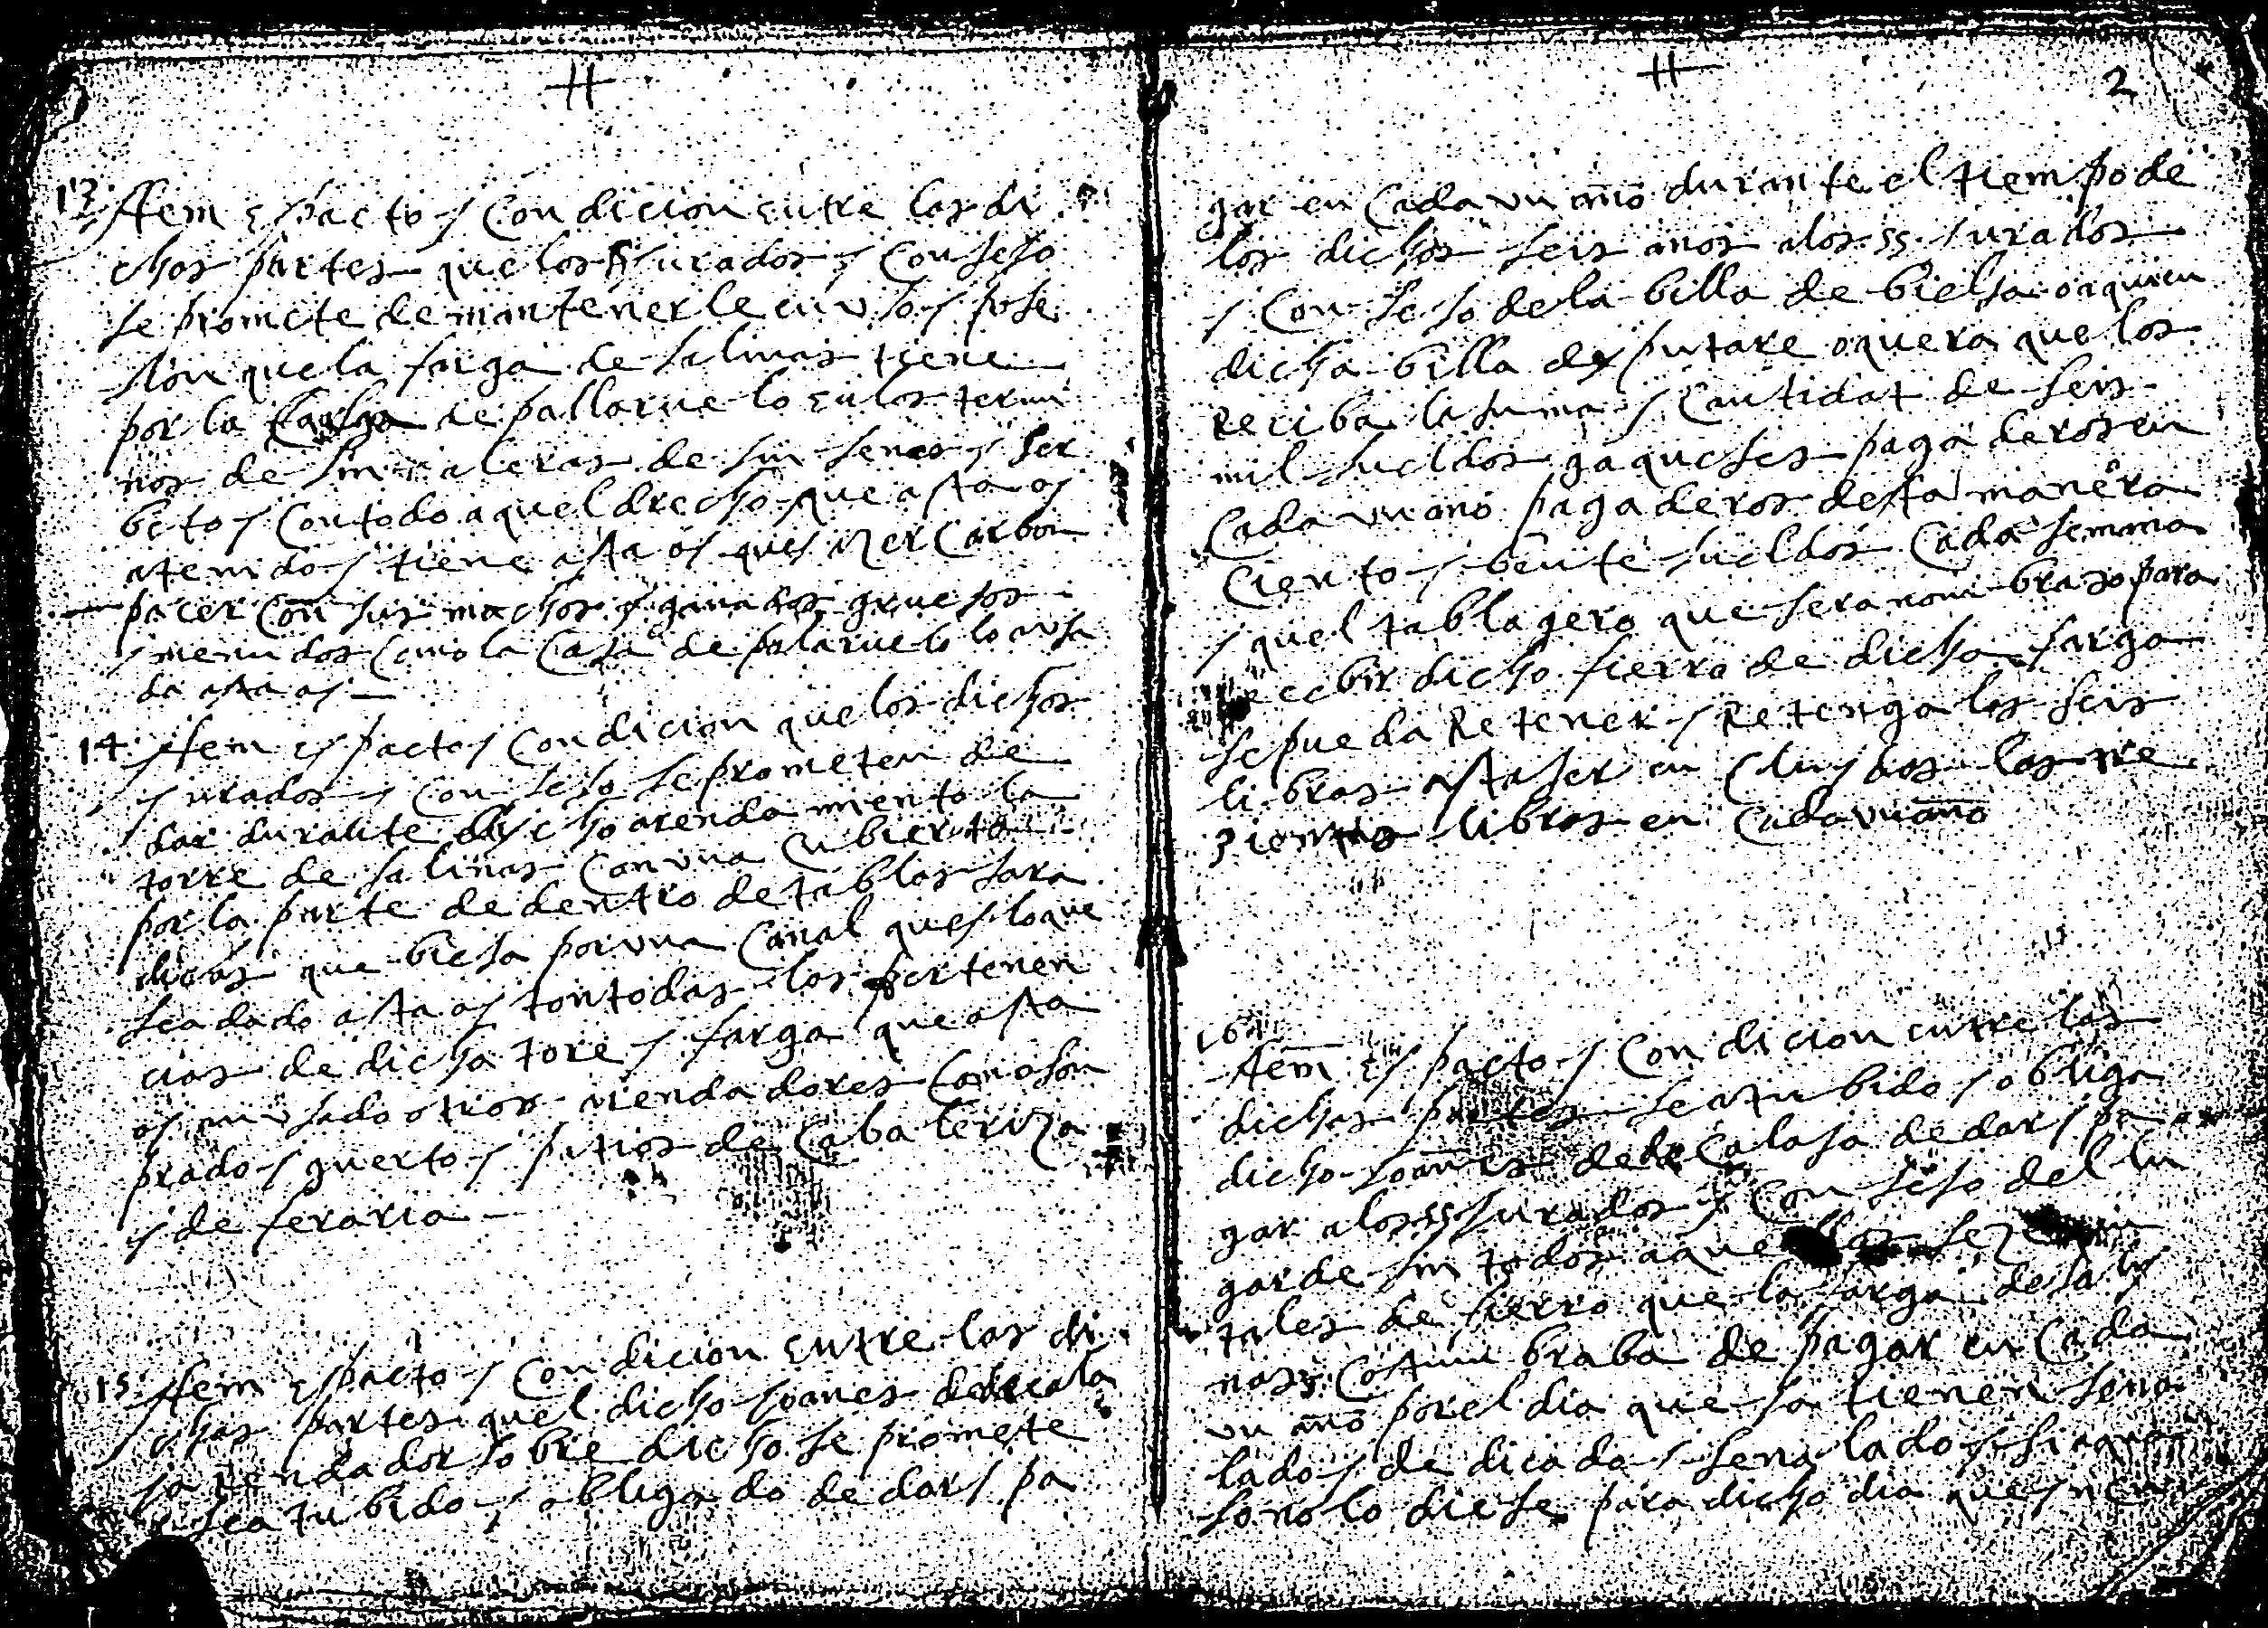 13 Item es pacto y condicion entre las di
chas partes que los ss jurados y consejo
se promete de mantenerle en uso y pose
sion que la farga de salinas tiene
por la farga de pallaruelo en los termi
nos de sin e aleras de sin senes y ser
beto y con todo aquel drecho que asta oy
a tenido y tiene asta oy ques azer carbon
pacer con sus machos y ganados gruesos
y menudos como la casa de palaruelo lo a usa
do asta oy
14 Item es pacto y condicion que los dichos
jurados y consejo se prometen de
dar durante dicho arendamiento la
torre de salinas con una cubierta
por la parte de dentro de tablas
que biesa por una canal ques lo que
sea dado asta oy con todas las pertenen
cias de dicha tore y farga que asta
oy an usado otros arendadores como son
prado y guerto y patios de caballeriza
y de feraria
15 Item es pacto y condicion entre las di
chas partes quel dicho joanes de la cala
sa rendador sobre dicho se promete
y sea tubido y obligado de dar y pa
H 2
gar en cada un año durante el tiempo de
los dichos seis anos a los ss jurados
y consejo de la billa de bielsa o a quien
dicha billa deputare o quera que los
reciba la suma y cantidat de seis
mil sueldos jaqueses pagaderos en
cada un ano pagaderos desta manera
ciento y bente sueldos cada semana
y quel tablagero que sera nombrado para
recebir dicho fierro de dicha farga
se pueda retener y retenga los seis
libras asta ser encluydos las tre
zientas libras en cada un año
16 Item es pacto y condicion entre las
dichas partes sea tubido y obliga
dicho joanes de la calasa de dar y pa
gar a los ss jurados y consejo del lu
gar de sin todos aquellos
tales de fierro que la farga de saly
nas costumbraba de pagar en cada
un año por el dia que ja tienen sena
lado y dedicado y senalado y si aque
so no lo diese para dicho dia que